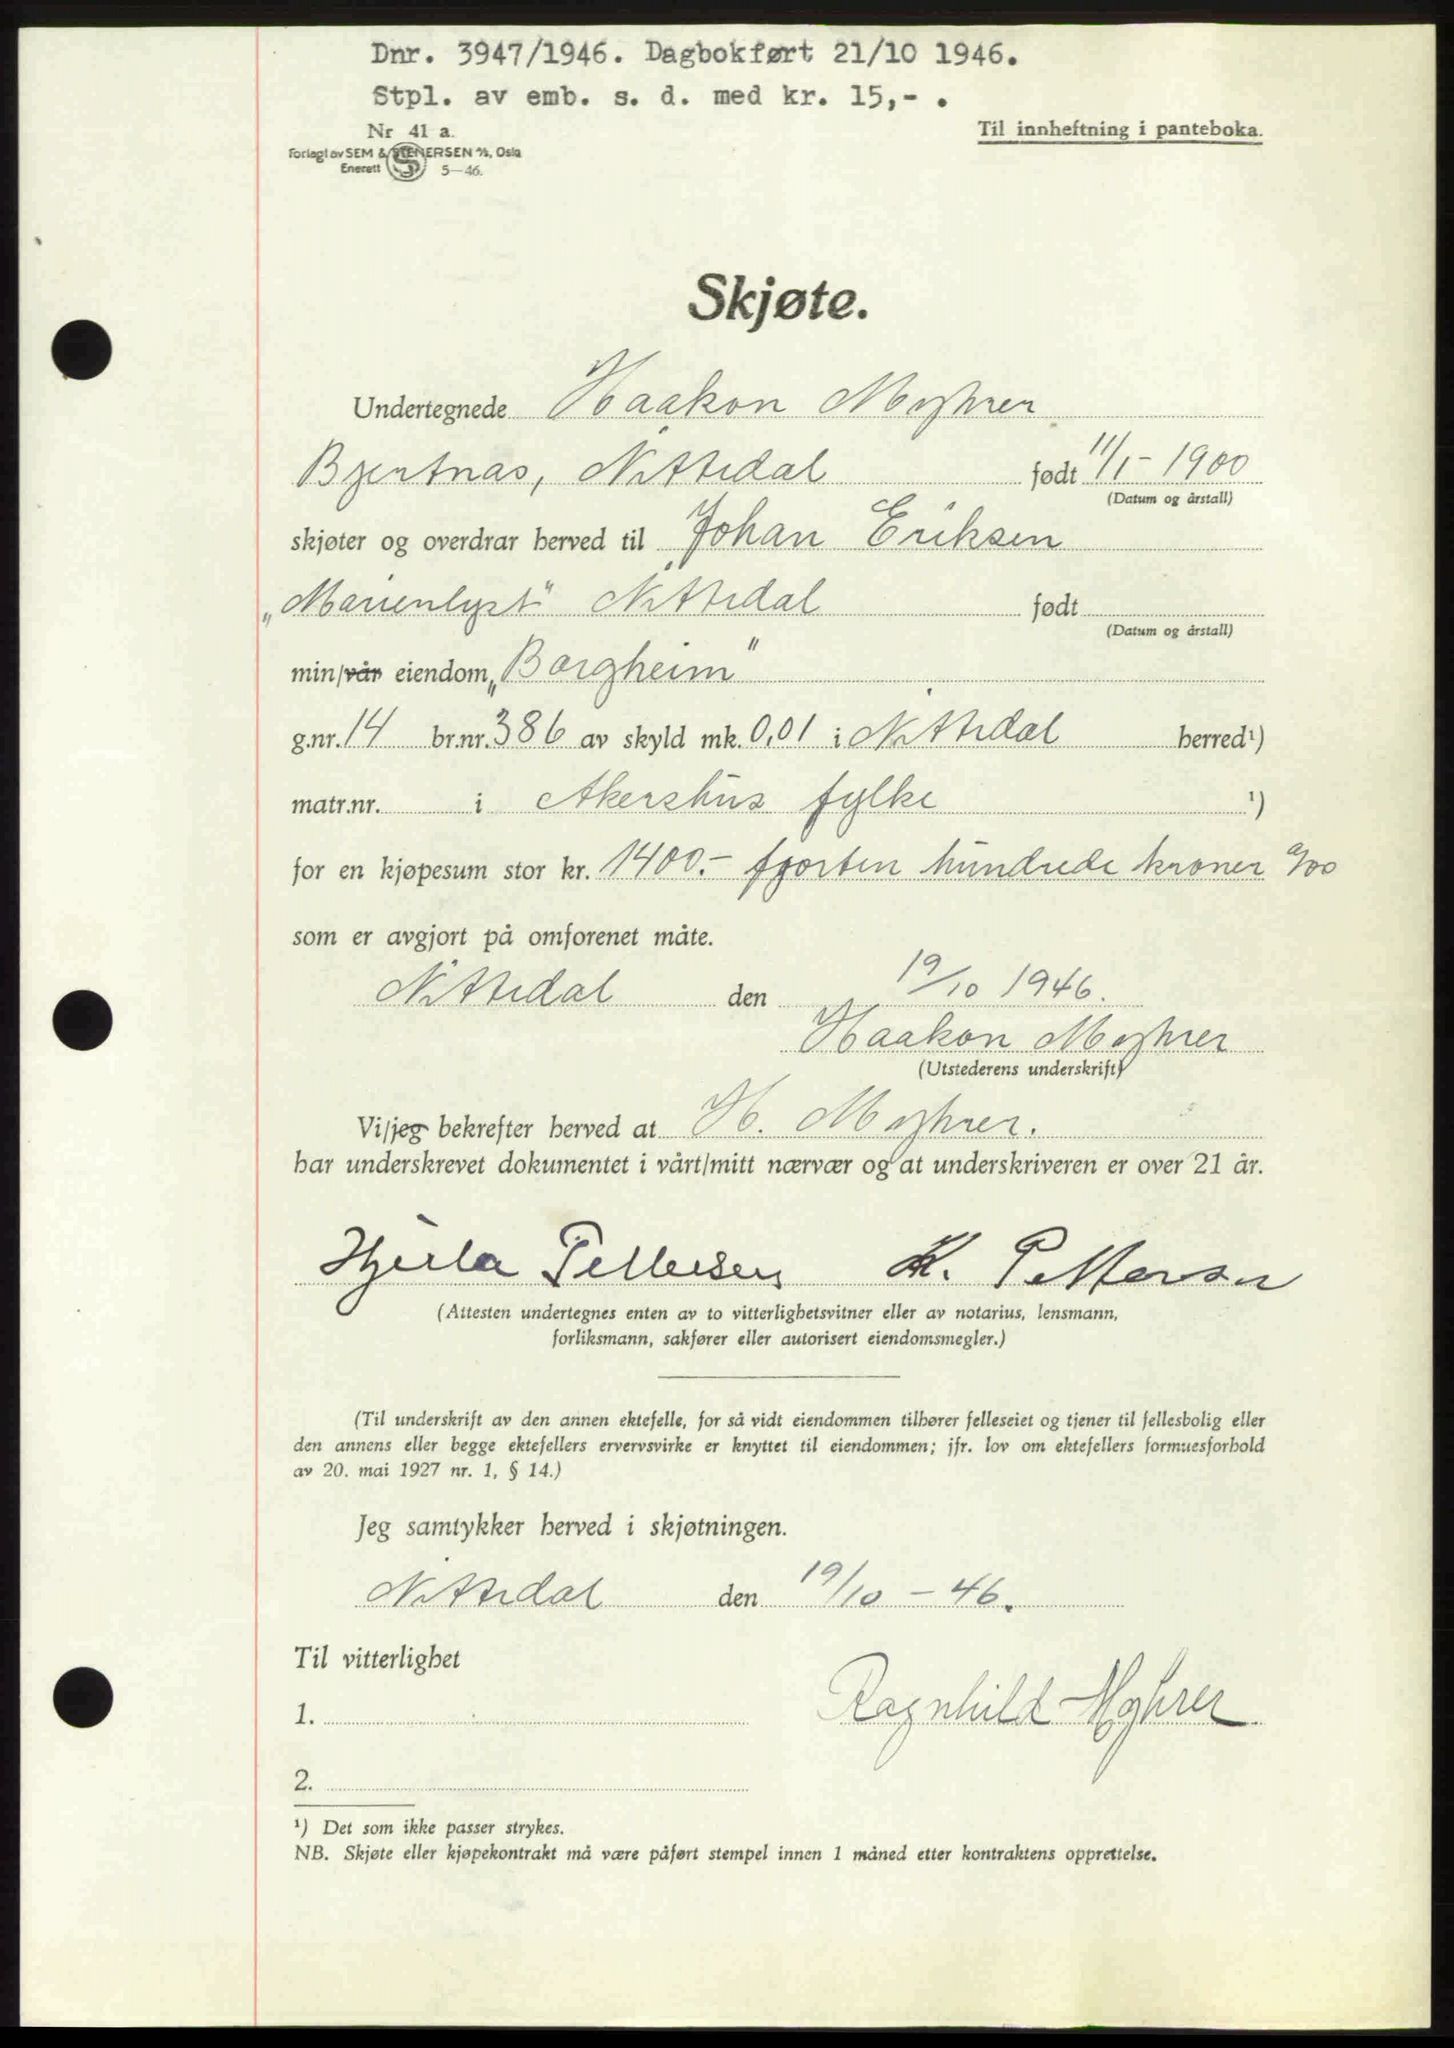 Dnr. 3947/1946. Dagbokført 21/10 1946.
Stpl. av emb. s. d. med kr. 15,- .
Nr 41 a.
Forlagt av SEM & STENERSEN A/S, Oslo
Enerett 5-46.
Til innheftning i panteboka.
Skjøte.
Undertegnede Haakon Myhrer
Bjertnæs, Nittedal født 11/1-1900
(Datum og årstall)
skjøter og overdrar herved til Johan Eriksen
„Marienlyst" Nittedal født
(Datum og årstall)
min/vår eiendom „Borgheim"
g.nr. 14 br.nr. 386 av skyld mk. 0,01 i Nittedal herred¹)
matr.nr. i Akershus fylke ¹)
for en kjøpesum stor kr. 1400.- fjorten hundrede kroner 0/00
som er avgjort på omforenet måte.
Nittedal den 19/10 1946.
Haakon Myhrer
(Utstederens underskrift)
Vi/jeg bekrefter herved at H. Myhrer.
har underskrevet dokumentet i vårt/mitt nærvær og at underskriveren er over 21 år.
Pettersen K. Pettersen
(Attesten undertegnes enten av to vitterlighetsvitner eller av notarius, lensmann,
forliksmann, sakfører eller autorisert eiendomsmegler.)
(Til underskrift av den annen ektefelle, for så vidt eiendommen tilhører felleseiet og tjener til fellesbolig eller
den annens eller begge ektefellers ervervsvirke er knyttet til eiendommen; jfr. lov om ektefellers formuesforhold
av 20. mai 1927 nr. 1, § 14.)
Jeg samtykker herved i skjøtningen.
Nittedal den 19/10 - 46.
Til vitterlighet
Ragnhild Myhrer
1.
2.
¹) Det som ikke passer strykes.
NB. Skjøte eller kjøpekontrakt må være påført stempel innen 1 måned etter kontraktens opprettelse.